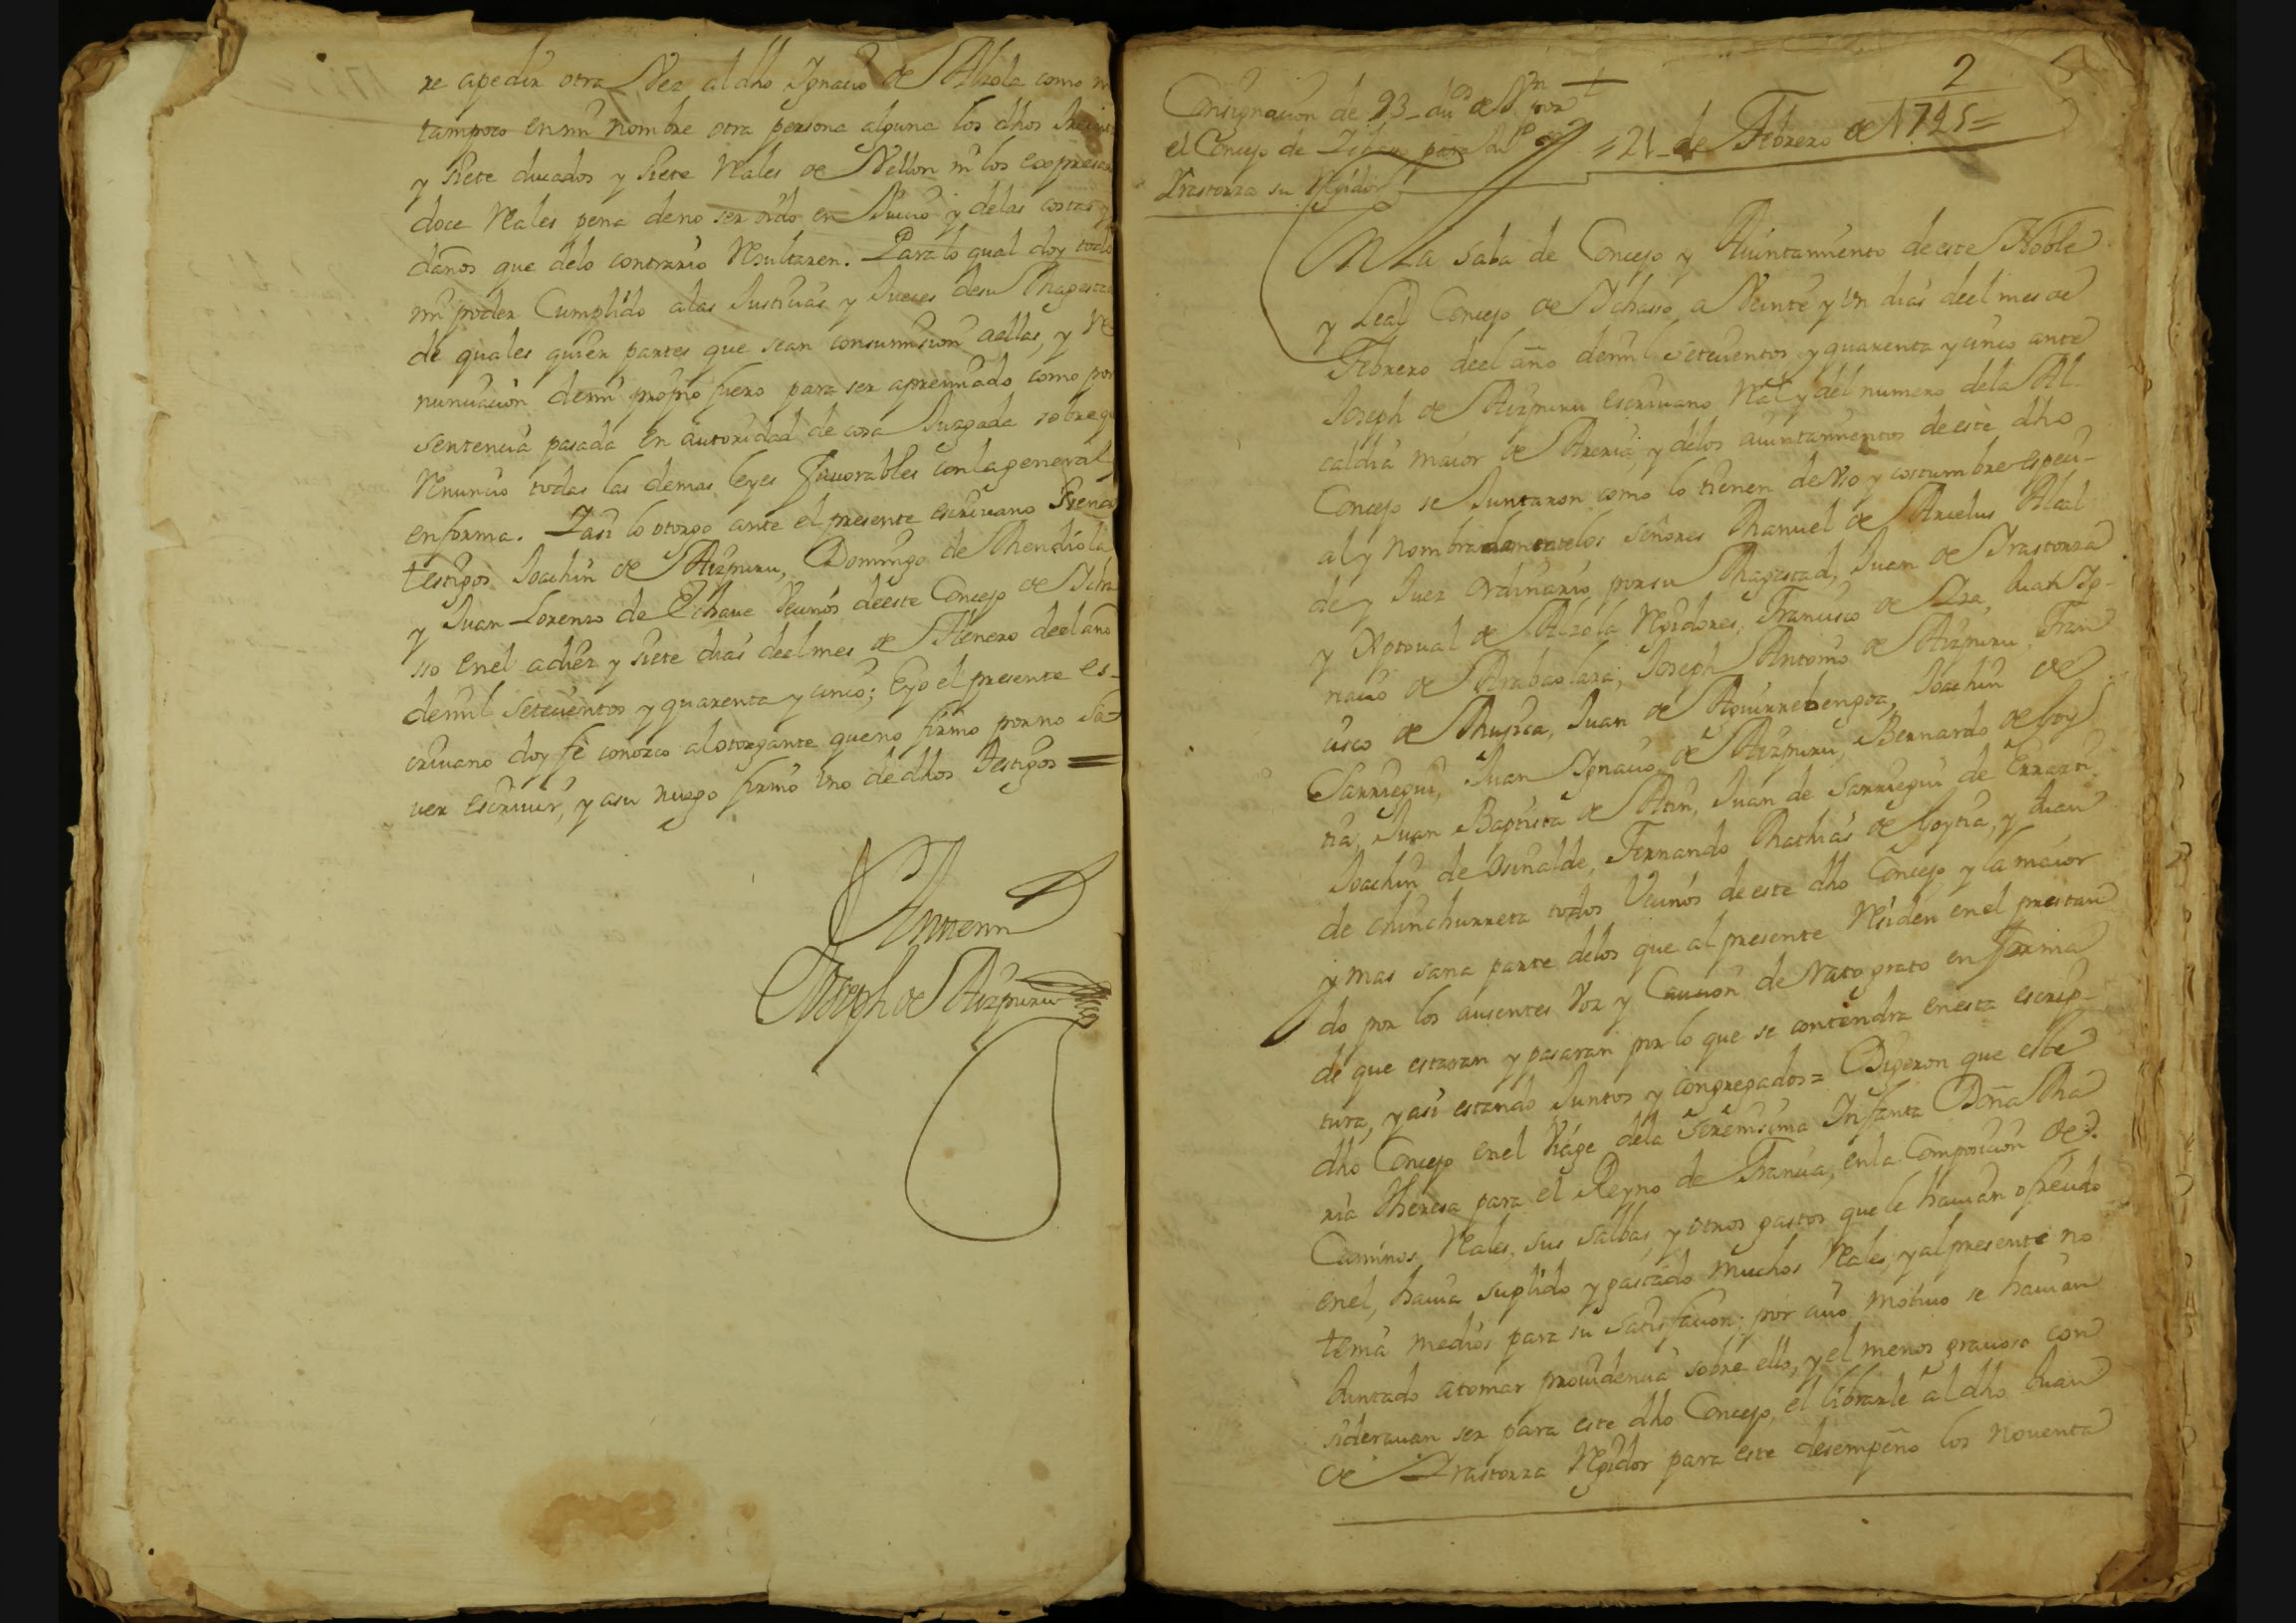 re apedir otra Vez al dho Ignacio de Alzola como ni
tampoco en mi nombre otra persona alguna los dhos
y siete ducados y siete Reales de Vellon ni los expresa
doce Reales pena deno ser oido en Juicio y delas costas y
daños que delo contrario Resultaren. Para lo qual doy todo
mi poder Cumplido alas Justicias y Jueces desu Magestad
de quales quier partes que sean consumision aellas, y Re
nunciacion demi propio fuero para ser apremiado como por
sentencia pasada en autoridad de cosa Juzgada sobre q
Renuncio todas las demas leyes favorables con la general
en forma. Iasi lo otorgo ante el presente escriuano siendo
testigos Joachin de Aizpuru, Domingo de Mendiola
y Juan Lorenzo de Echaue Vecinos de este Concejo de Icha
sso en el adiez y siete dias de el mes de Henero de el año
demil setecientos y quarenta y cinco; Eyo el presente es-
criuano doy fe conozco al otorgante que no firmo por no sa
uer escriuir, y asu ruego firmo Uno de dhos testigos =
Antemi
Joseph de Aizpuru
2
Consignacion de 93 duc.os de Vn por
el Concejo de Ichaso para Juº de
Irastorza su Regidor
= 21 de Febrero de 1745 =
En La sala de Concejo y Auintamiento de este Noble
y Leal Concejo de Ichasso, a Veinte y Un dias de el mes de
Febrero de el año demil setecientos y quarenta y cinco ante
Joseph de Aizpuru escriuano Real y del numero dela Al-
caldia maior de Areria, y delos auintamientos de este dho
Concejo se Juntaron como lo tienen de Uso y costumbre especi-
al y nombradamente los señores Manuel de Arcelus Alcal
de y Juez ordinario por su Magestad, Juan de Irastorza
y Xptoual de Alzola Regidores, Francisco de Lza, Juan Ig-
nacio de Arabaolaza, Joseph Antonio de Aizpuru, Fran
cisco de Mugica, Juan de Aguirrebengoa, Joachin de
Sarriegui, Juan Ignacio de Aizpuru, Bernardo de Goy
tia, Juan Baptista de Atin, Juan de Sarriegui de Errazn
Joachin de Osinalde, Fernando Mathias de Goytia, y Juan
de chinchurreta todos Vecinos de este dho Concejo y la maior
y mas sana parte delos que al presente Residen en el prestan
do por los ausentes Voz y Caucion de Rato grato en forma
de que estaran y pasaran por lo que se contendra en esta escrip-
tura, y asi estando Juntos y congregados = Digeron que este
dho Concejo en el Viage dela Serenisima Infanta Doña Ma
ria Theresa para el Reyno de Francia, en la Composicion de
Caminos Reales, sus salbas, y otros gastos que le hauian ofrecido
en el, hauia suplido y gastado muchos Reales, y al presente no
tenia medios para su satisfacion; por cuio motiuo se hauian
Juntado atomar prouidencia sobre ello, y el menos grauoso con
siderauan ser para este dho Concejo, el librarle al dho Juan
de Irastorza Regidor para este desempeño los nouenta